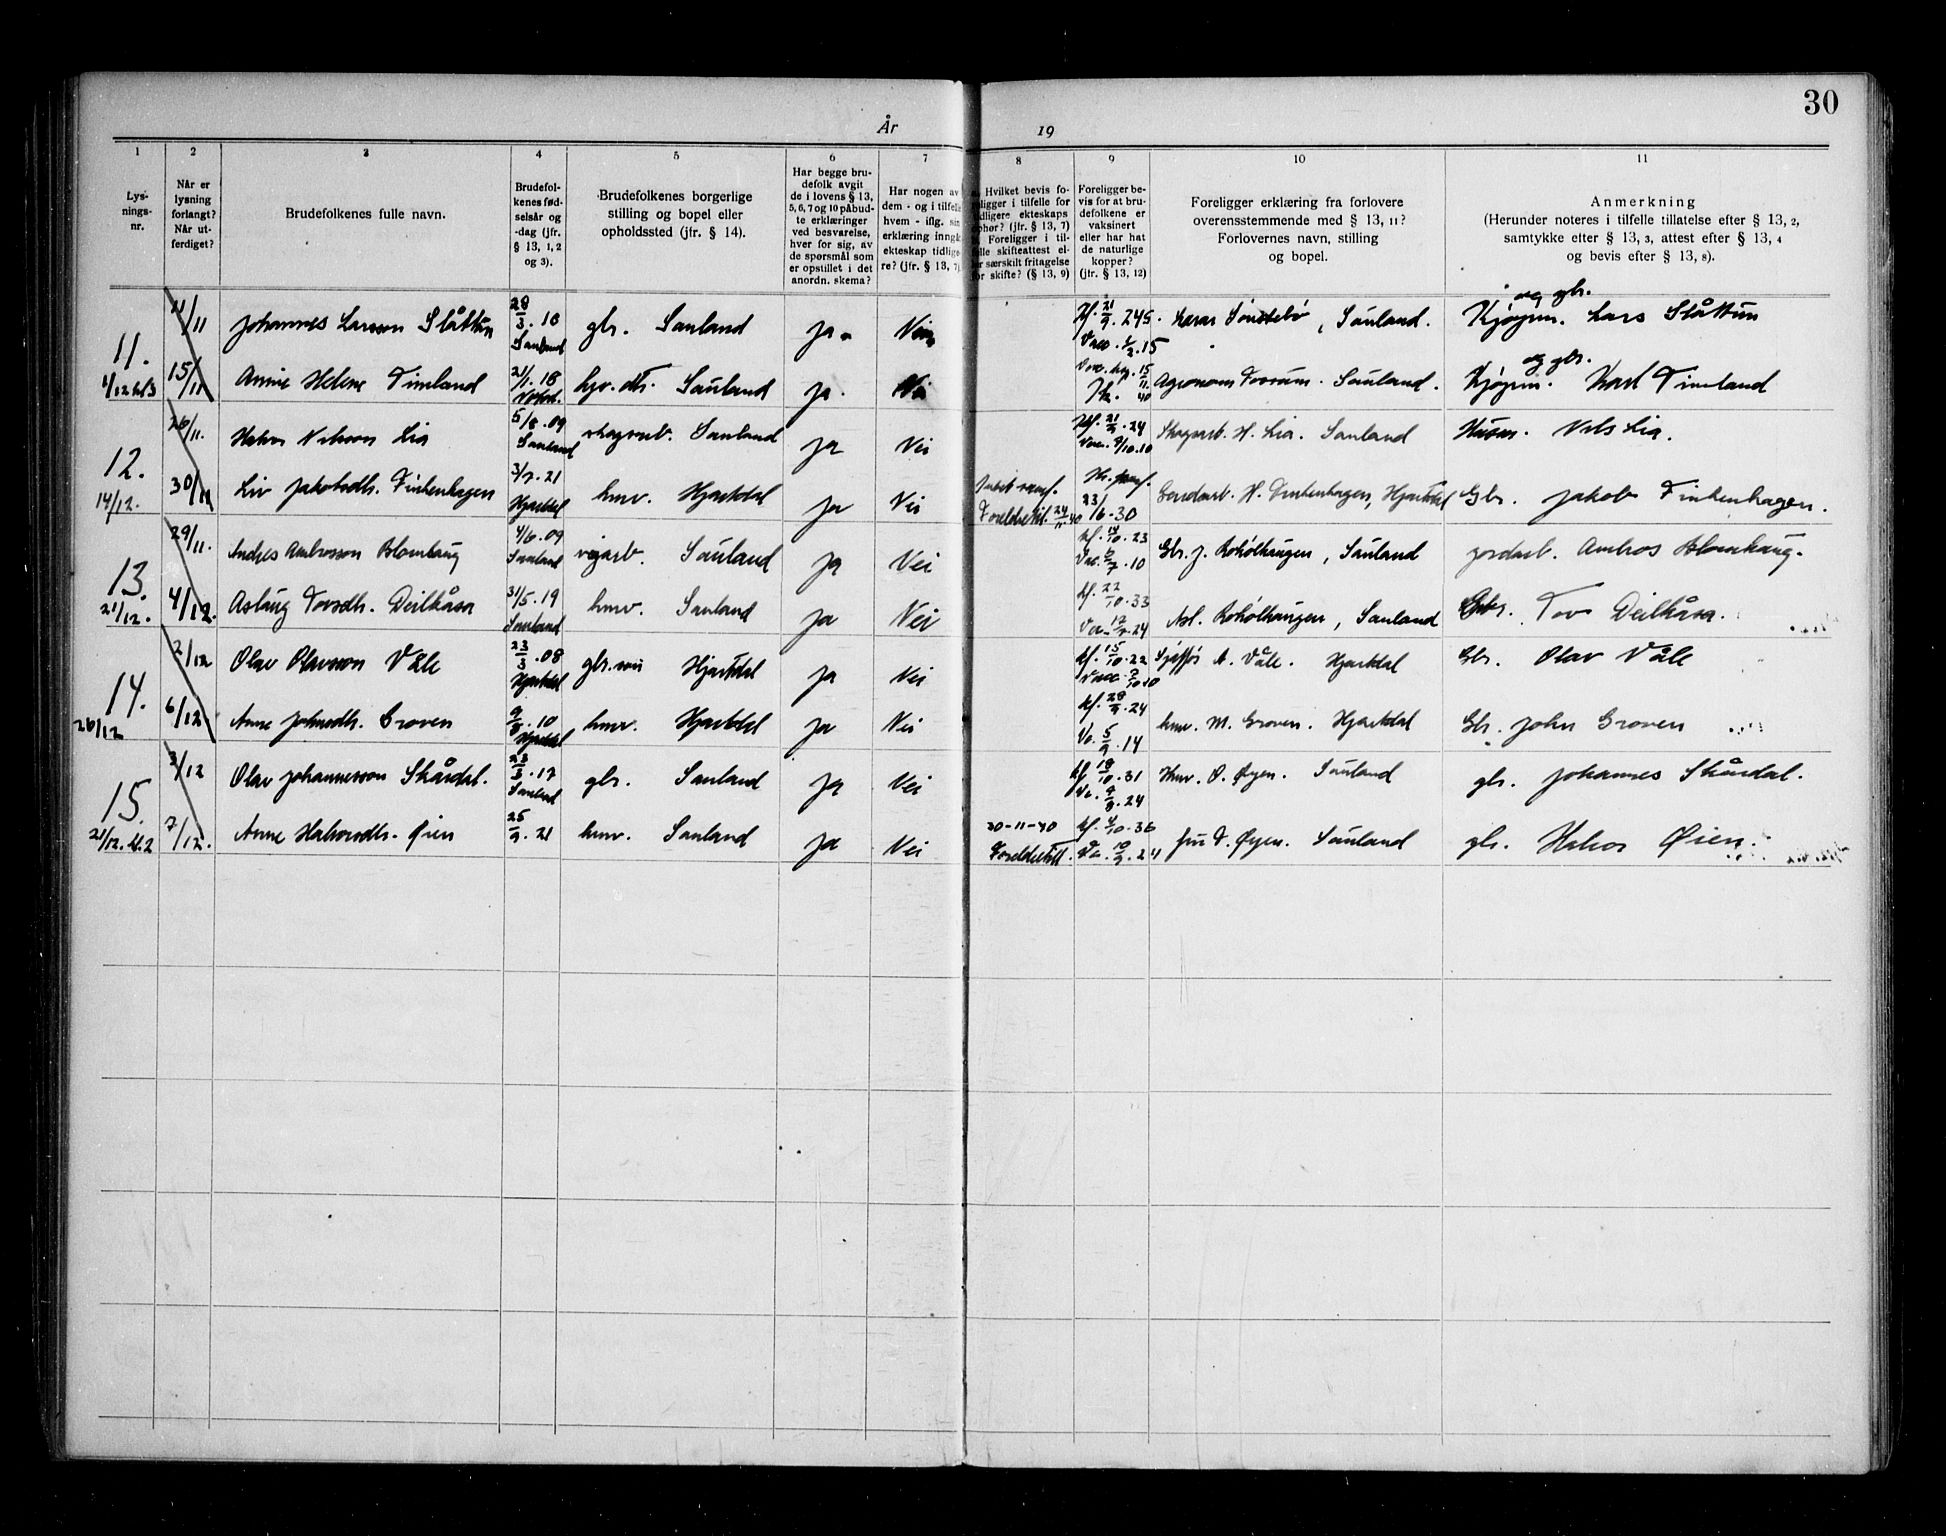 30
År 19
1 2 3 4 5 6 7 8 9 10 11
Lys-
nings-
nr.
Når er
lysning
forlangt?
Når ut-
ferdiget?
Brudefolkenes fulle navn.
Brudefol-
kenes fød-
selsår og
-dag (jfr.
§ 13, 1, 2
og 3).
Brudefolkenes borgerlige
stilling og bopel eller
opholdssted (jfr. § 14).
Har begge bru-
defolk avgit
de i lovens § 13,
5, 6, 7 og 10 påbud-
te erklæringer
ved besvarelse,
hver for sig, av
de spørsmål som
er opstillet i det
anordn. skema?
Har nogen av
dem - og i tilfelle
hvem - iflg. sin
erklæring inngåt
ekteskap tidlige-
re? (jfr. § 13, 7)
Hvilket bevis fo-
religger i tilfelle for
tidligere ekteskaps
ophør? (jfr. § 13, 7)
Foreligger i til-
felle skifteattest el-
ler særskilt fritagelse
for skifte? (§ 13, 9)
Foreligger be-
vis for at bru-
defolkene er
vaksinert
eller har hat
de naturlige
kopper?
(jfr. § 13, 12)
Foreligger erklæring fra forlovere
overensstemmende med § 13, 11?
Forlovernes navn, stilling
og bopel.
Anmerkning
(Herunder noteres i tilfelle tillatelse efter § 13, 2,
samtykke efter § 13, 3, attest efter § 13, 4
og bevis efter § 13, 8).
11. Johannes Larsson Slåttun 28/3.10 Sauland gbr. Sauland ja. Nei Sauland. Kjøpm. og gbr. Lars Slåttun
15/11 Anne Helene Timland 21/1.18 Sauland ja. Nei Agronom Sauland. Kjøpm. og gbr. Timland
12. 26/11. Halvor Nilsson Lia 5/8.09 Sauland skogsarb. Sauland ja Nei Kf. 21/9.24 Skogsarb. H. Lia. Sauland Nils Lia.
14/12. 30/11 Liv Jakobsdtr. Finkenhagen 3/7.21 Hjartdal hmv. Hjartdal ja Nei Foreldretil. 24/11.40 23/6.30 H. Finkenhagen, Hjartdal Gbr. Jakob Finkenhagen.
13. 29/11. Andres Ambrosson Blomhaug 4/6.09 Sauland vegarb. Sauland ja Nei Kf. 14/10.23 Vac. 6/7.10 Gbr. J. Roholthaugen, Sauland jordarb. Ambros Blomhaug.
21/12. 4/12. Aslaug Tovsdtr. Deilkåsa 31/5.19 Sauland hmv. Sauland ja Nei Kf. 22/10.33 Roholthaugen, Sauland Gbr. Tov Deilkåsa.
14. 2/12 Olav Olavsson Våle 23/3.08 Hjartdal gbr.son Hjartdal ja Nei Kf. 15/10.22 Sjåfør A. Våle. Hjartdal Gbr. Olav Våle
26/12 6/12. Anne Johnsdtr. Groven 9/8.10 Hjartdal hmv. Hjartdal ja Nei Kf. 28/9.24 Va. 5/9.14 hmv. M. Groven. Hjartdal Gbr. John Groven
15. 3/12 Olav Johannesson Skårdal. 23/3.17 Sauland gbr. Sauland ja Nei Kf. 18/10.31 Va. 9/8.24 Hmv. O. Øyen. Sauland gbr. Johannes Skårdal.
21/12. kl.2 7/12. Anne Halvorsdtr. Øien 25/9.21 hmv. Sauland ja Nei 30-11-40 Foreldretill. Kf. 4/10.36 Va. 10/9.24 fru T. Øyen. Sauland gbr. Halvor Øien.